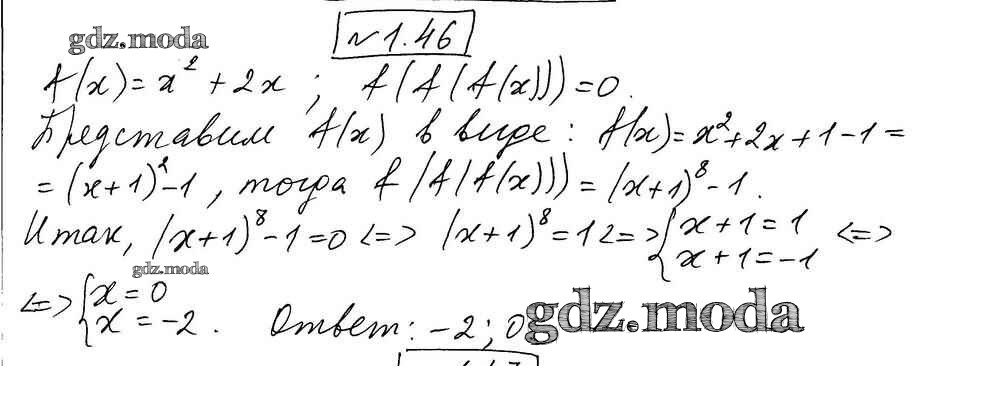 №1.46
gdz.moda
f(x)=x²+2x; f(f(f(x)))=0.
Представим f(x) в виде: f(x)=x²+2x+1-1=
=(x+1)²-1, тогда f(f(f(x)))=(x+1)⁸-1.
Итак, (x+1)⁸-1=0 <=> (x+1)⁸=1 <=> { x+1=1
x+1=-1 <=>
gdz.moda
<=> { x=0
x=-2. Ответ: -2; 0
gdz.moda